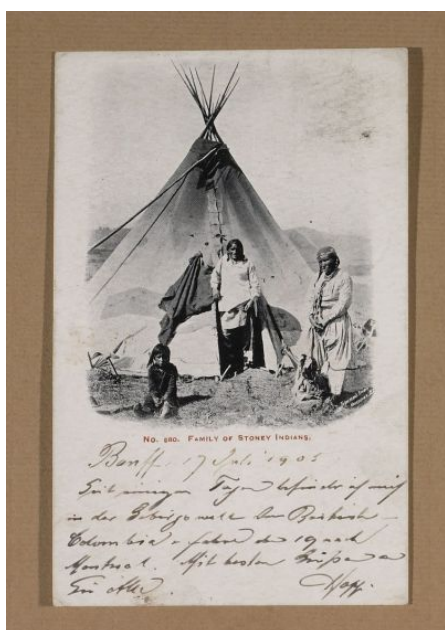 No. 880. Family of Stoney Indians.
Banff. 17 Juli 1905
Seit einigen Tagen befinde ich mich
in der Gebirgswelt von Britisch
Columbia & fahre den 19 nach
Montreal. Mit besten Grüßen an
Sie alle.